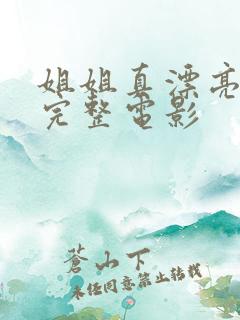 姐姐真漂亮
完整电影
蒼山下
未经同意禁止转载